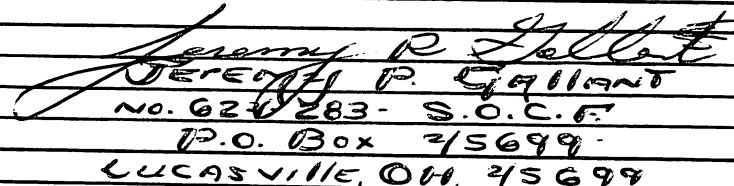 Jeremy R
JEREMY P. GAllANT
NO. 624 283 - S.O.C.F.
P.O. BOX 45699
LUCASVIllE, OH, 45699